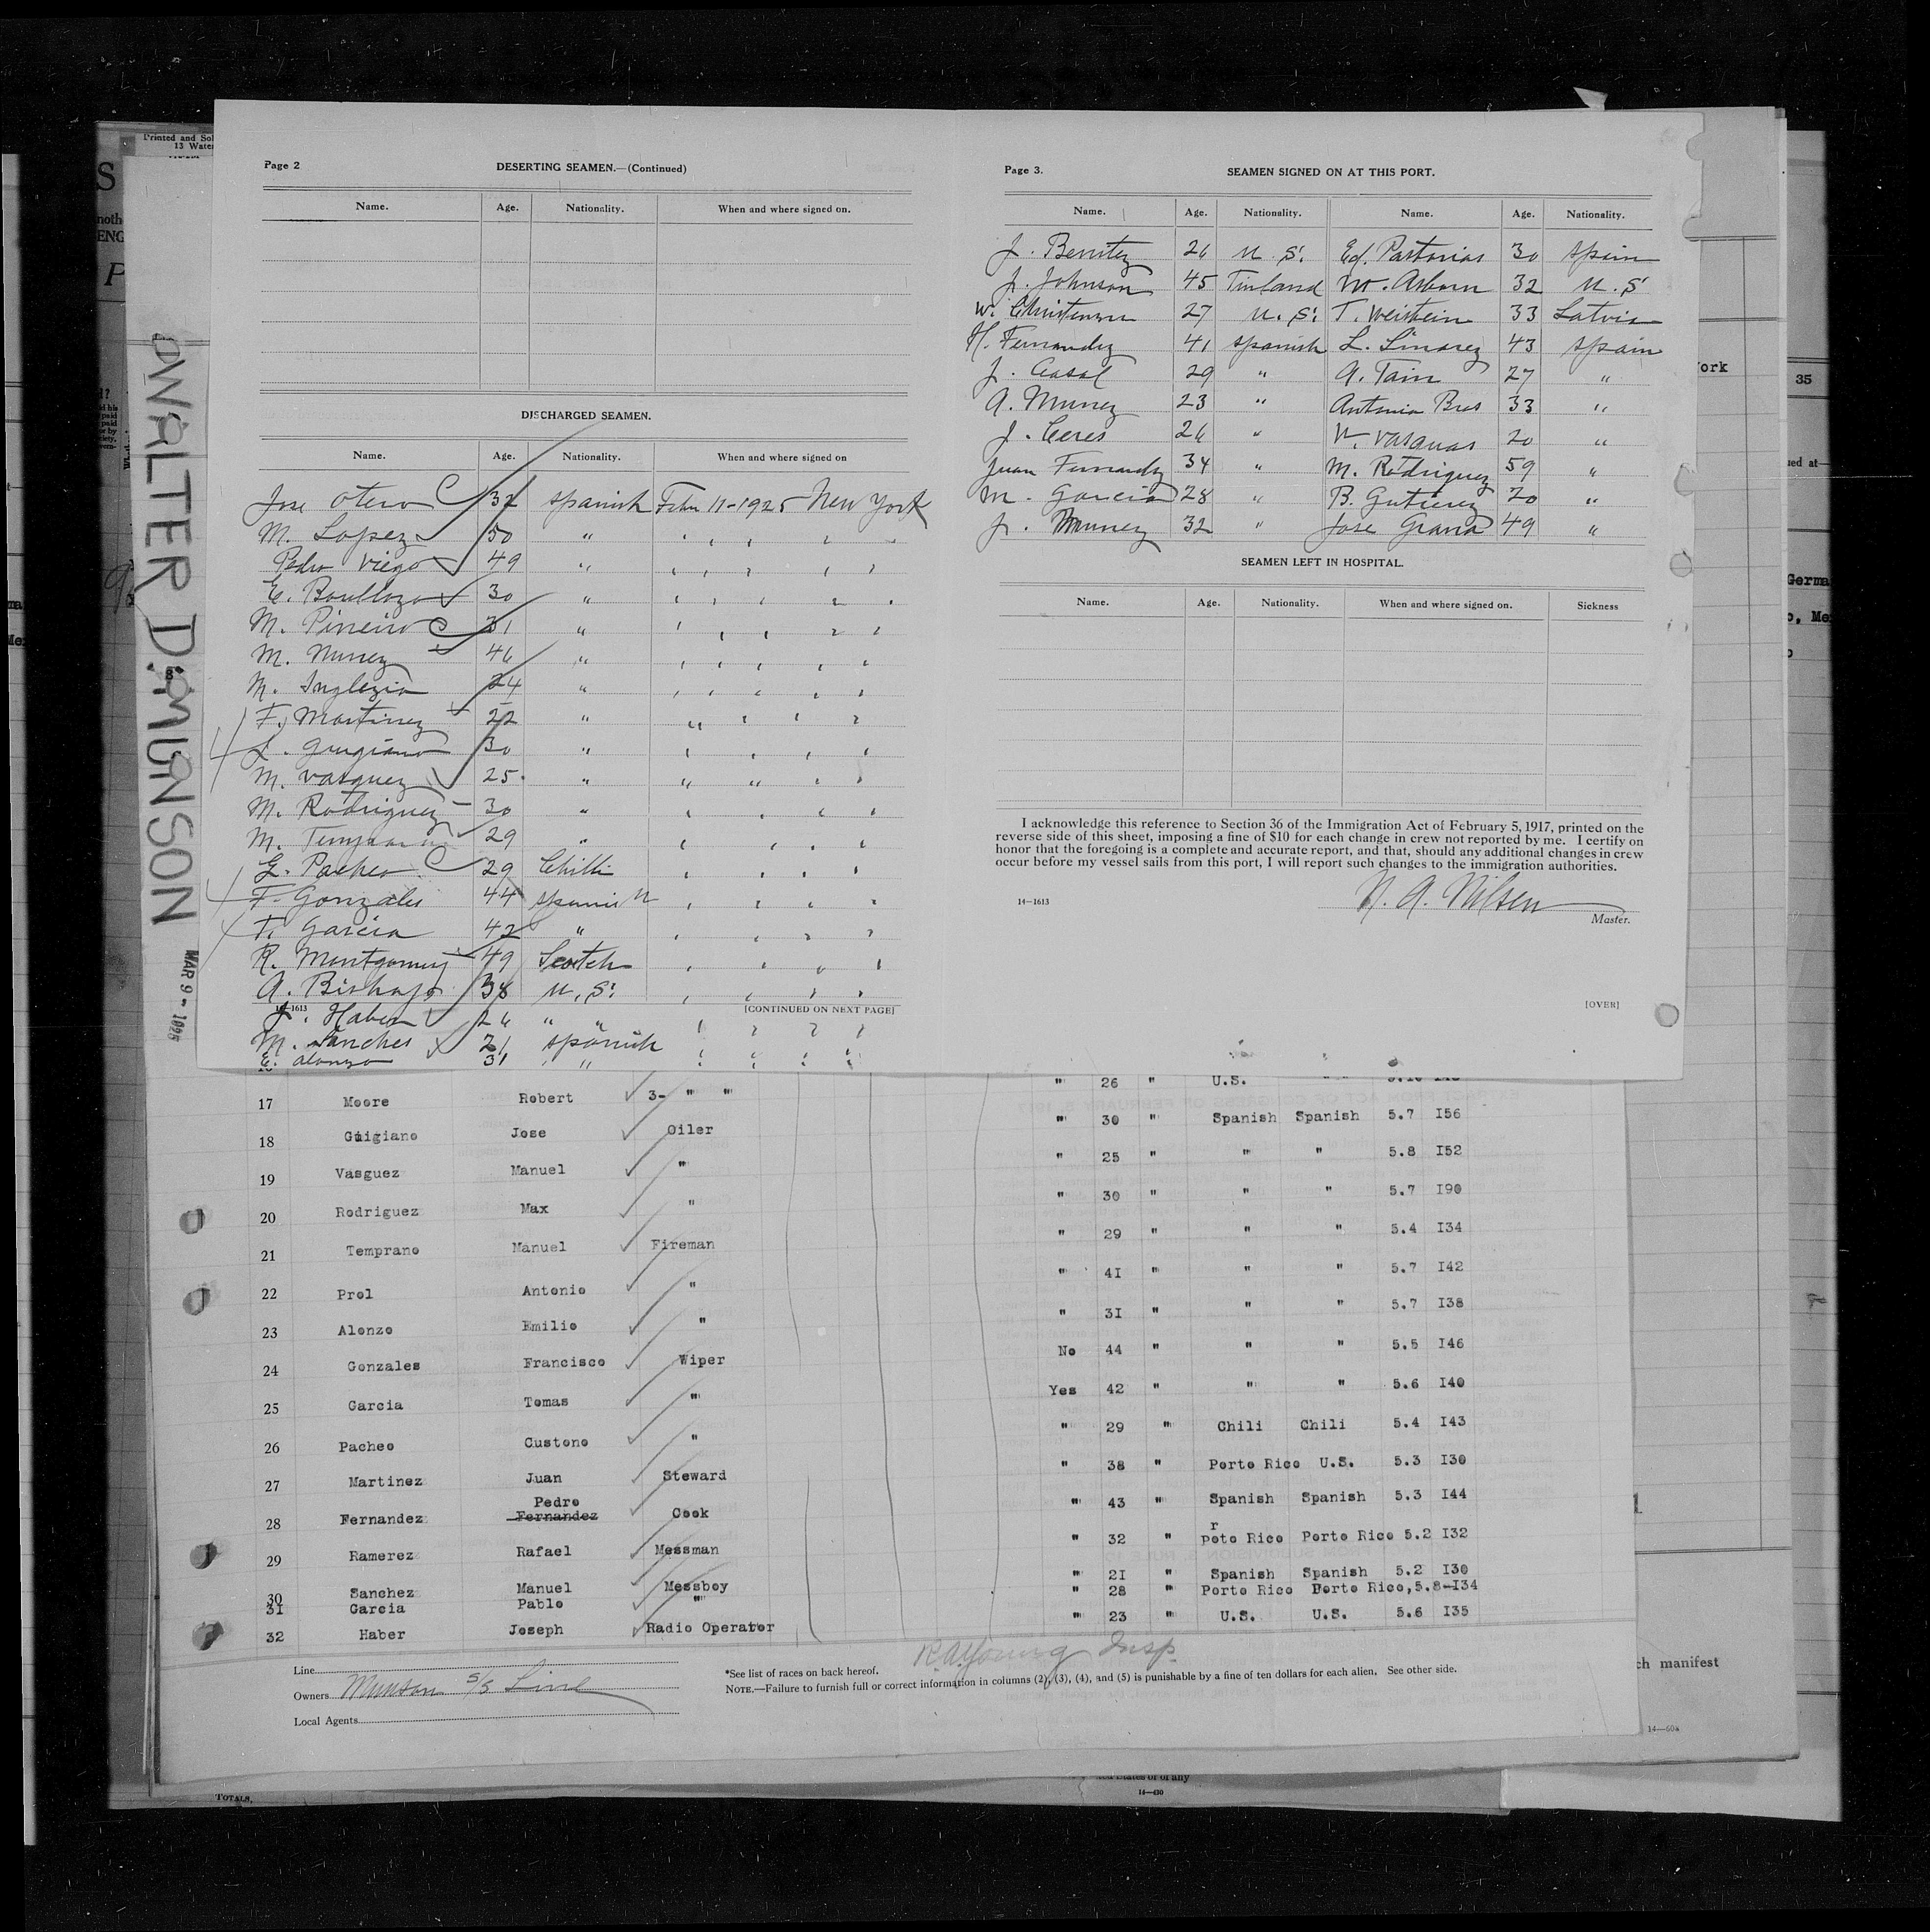 Printed and Sol
13 Water
Page 2
DESERTING SEAMEN.—(Continued)
Name. Age. Nationality. When and where signed on.
DISCHARGED SEAMEN.
Name. Age. Nationality. When and where signed on
Jose Otero 32 Spanish Feb 11-1925 New York
M. Lopez 50 "
Pedro Viego 49 "
E. Boullozo 30 "
M. Pineiro 31 "
M. Nunez 46 "
M. Inglezia 24 "
F. Martinez 22 "
30 "
M. Vasquez 25 "
M. Rodriguez 30 "
M. 29 "
G. Pacheo 29 Chilli
F. Gonzales 44 Spanish
T. Garcia 42 "
R. Montgomery 49 Scotch
A. Bishop 38 U.S.
14—1613
[CONTINUED ON NEXT PAGE]
J. Haber 26 " "
M. Sanches 21 Spanish
E. Alonzo 31 "
WALTER D. MUNSON
MAR 9- 1925
Page 3.
SEAMEN SIGNED ON AT THIS PORT.
Name. Age. Nationality. Name. Age. Nationality.
J. Benitez 26 U.S. Ed. Pastorias 30 Spain
J. Johnson 45 Finland W. Asborn 32 U.S
W. Christensen 27 U.S. T. Weishein 33 Latvia
H. Fernandez 41 Spanish L. Linarez 43 Spain
J. Casal 29 " A. Tain 27 "
A. Munez 23 " Antonio Bros 33 "
J. Ceres 26 " V. Vasquas 20 "
Juan Fernandez 34 " M. Rodriguez 59 "
M. Garcia 28 " B. Gutierez 20 "
J. Munez 32 " Jose Grana 49 "
SEAMEN LEFT IN HOSPITAL.
Name. Age. Nationality. When and where signed on. Sickness
I acknowledge this reference to Section 36 of the Immigration Act of February 5, 1917, printed on the
reverse side of this sheet, imposing a fine of $10 for each change in crew not reported by me. I certify on
honor that the foregoing is a complete and accurate report, and that, should any additional changes in crew
occur before my vessel sails from this port, I will report such changes to the immigration authorities.
14—1613
N. A. Nilsen
Master.
[OVER]
" 26 " U.S.
17 Moore Robert 3- " " " 30 " Spanish Spanish 5.7 I56
18 Guigiano Jose Oiler " 25 " " " 5.8 I52
19 Vasguez Manuel " " 30 " " " 5.7 I90
20 Rodriguez Max " " 29 " " " 5.4 I34
21 Temprano Manuel Fireman " 4I " " " 5.7 I42
22 Prol Antonio " " 3I " " " 5.7 I38
23 Alonzo Emilio " No 44 " " " 5.5 I46
24 Gonzales Francisco Wiper Yes 42 " " " 5.6 I40
25 Garcia Tomas " " 29 " Chili Chili 5.4 I43
26 Pacheo Custono " " 38 " Porto Rico U.S. 5.3 I30
27 Martinez Juan Steward " 43 " Spanish Spanish 5.3 I44
28 Fernandez Pedro Fernandez Cook " 32 " Poto Rico Porto Rico 5.2 I32
29 Ramerez Rafael Messman " 2I " Spanish Spanish 5.2 I30
30 Sanchez Manuel Messboy " 28 " Porto Rico Porto Rico,5.8-I34
3I Garcia Pablo " " 23 " U.S. U.S. 5.6 I35
32 Haber Joseph Radio Operator
Line
Owners Munson S/S Line
Local Agents
R.A. Young Insp.
*See list of races on back hereof.
NOTE.—Failure to furnish full or correct information in columns (2), (3), (4), and (5) is punishable by a fine of ten dollars for each alien. See other side.
ork
35
ued at—
Germa
o, Me
ch manifest
14—60a
TOTALS,
14—430